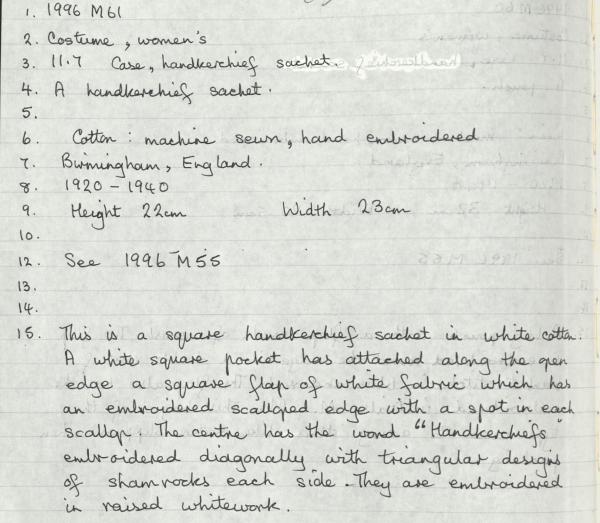 1. 1996 M61
2. Costume, women's
3. 11.7 Case, handkerchief sachet.
4. A handkerchief sachet.
5.
6. Cotton: machine sewn, hand embroidered
7. Birmingham, England.
8. 1920 - 1940
9. Height 22cm Width 23cm
10.
12. See 1996 M55
13.
14.
15. This is a square handkerchief sachet in white cotton.
A white square pocket has attached along the open
edge a square flap of white fabric which has
an embroidered scalloped edge with a spot in each
scallop. The centre has the word "Handkerchiefs
embroidered diagonally with triangular designs
of shamrocks each side. They are embroidered
in raised whitework.